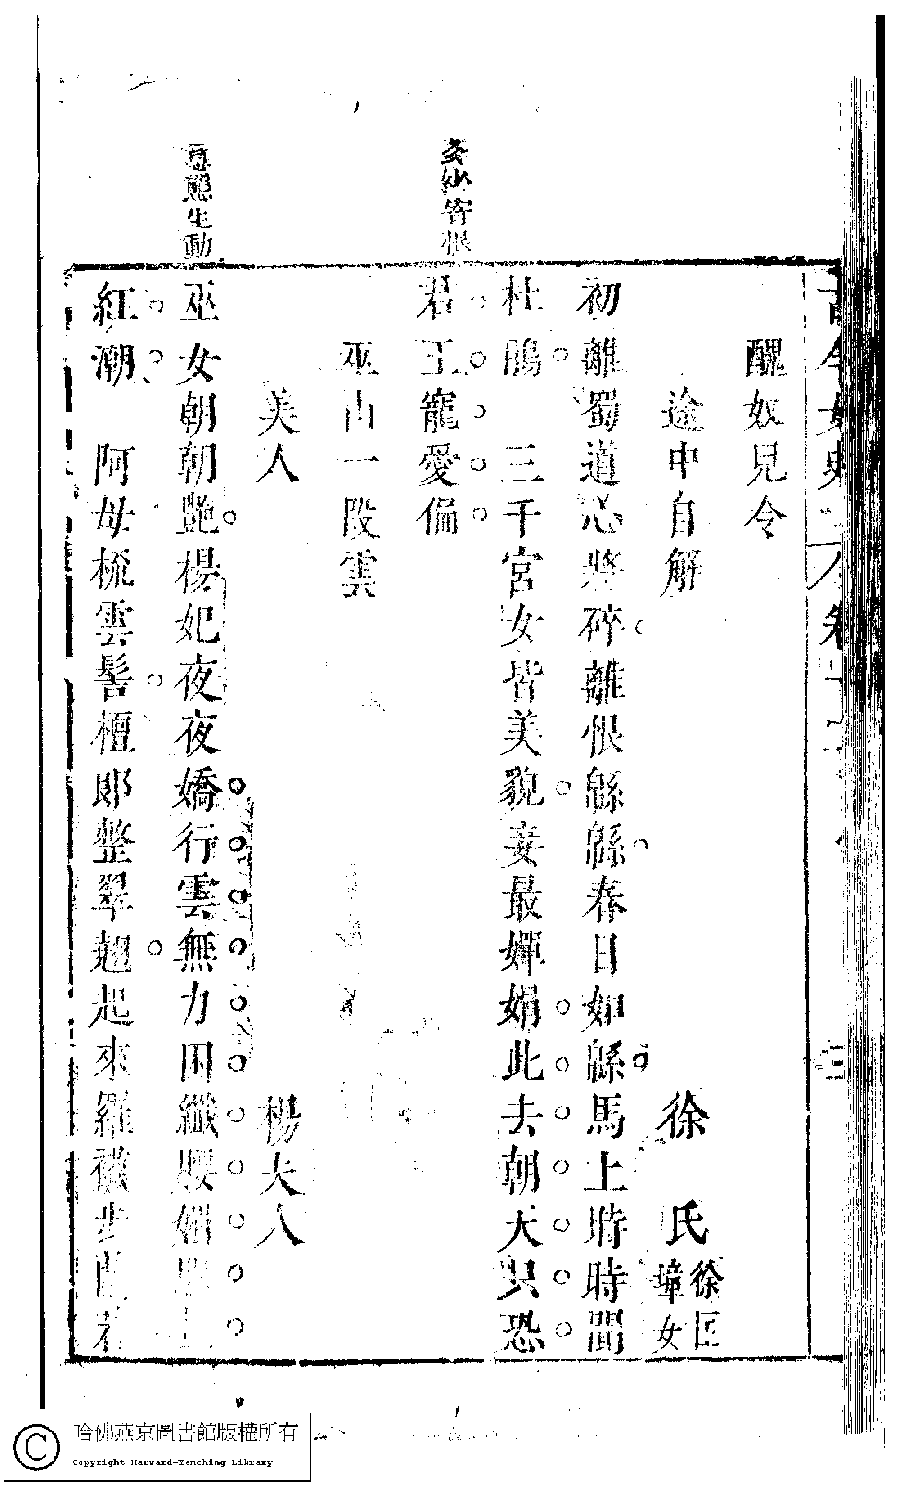 醜奴兒令
途中自解
徐氏
徐匡
璋女
初離蜀道心將碎離恨緜緜春日如緜馬上時時聞
杜鵑 三千宮女皆美貌妾最嬋娟此去朝天只恐
君王寵愛偏
寄恨
巫山一段雲
美人
楊夫人
巫女朝朝艷楊妃夜夜嬌行雲無力困纖腰媚
態生動
紅潮 阿母梳雲髻檀郎整翠翹起來羅襪步
哈佛燕京圖書館版權所有
Copyright Harvard-Yenching Library